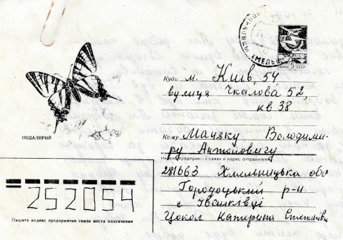 Куда м. Київ, 54
вулиця Чкалова 52,
кв 38
ПОДАЛИРИЙ
Кому Маняку Володими-
ру Антоновичу
Индекс предприятия связи и адрес отправителя
281663 Хмельницька обл
Городоцький р-н
с Іванківці
Цокол Катерина Степанівна
252054
Пишите индекс предприятия связи места назначения